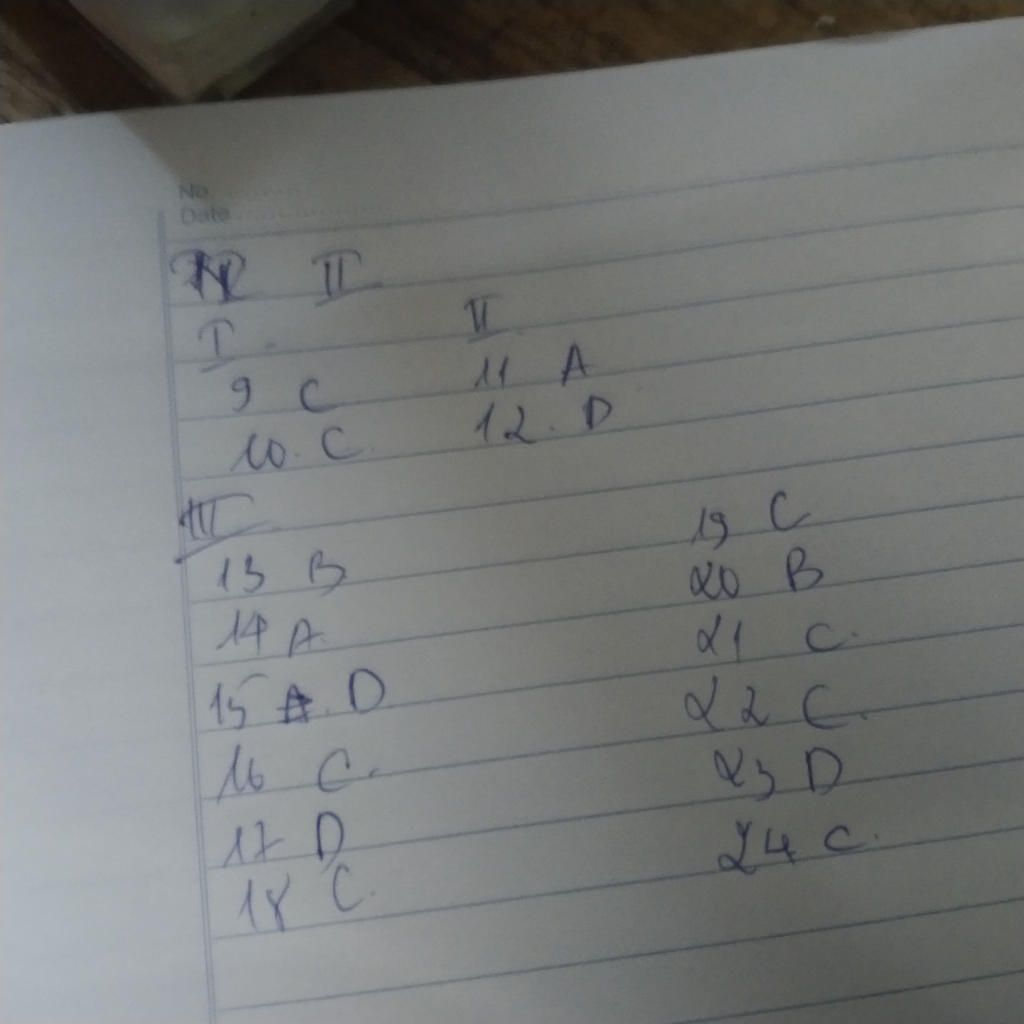 No
Date
II
I. II
9 C 11 A
10. C. 12. D
III
13 B 19 C
14 A. 20 B
15 D 21 C.
16 C. 22 C.
17 D 23 D
18 C. 24 C.